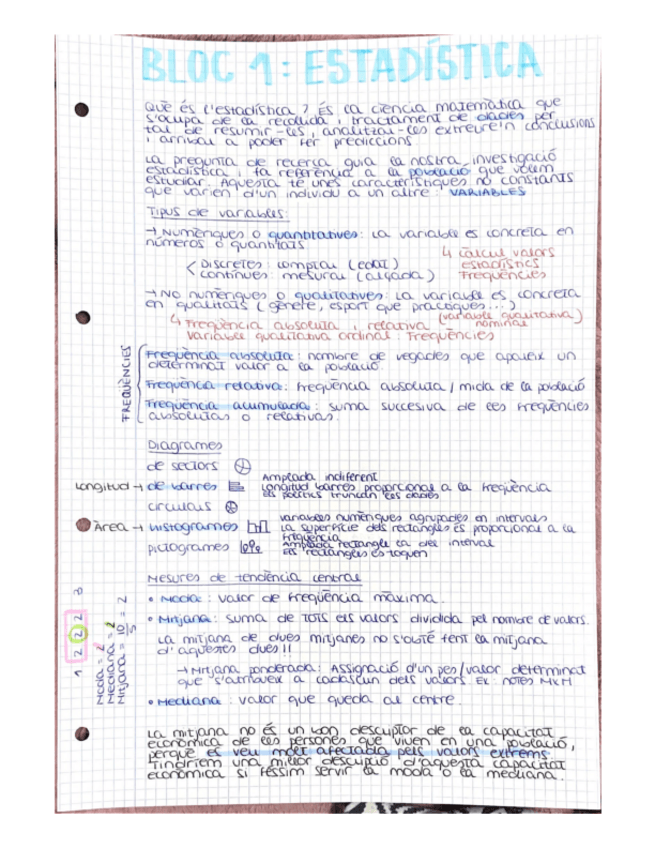 BLOC 1: ESTADÍSTICA
Què és l'estadística? És la ciència matemàtica que
s'ocupa de la recollida i tractament de dades per
tal de resumir-les, analitzar-les extreure'n conclusions
i arribar a poder fer prediccions
La pregunta de recerca guia la nostra investigació
estadística i fa referència a la població que volem
estudiar. Aquesta té unes característiques no constants
que varien d'un individu a un altre: VARIABLES
Tipus de variables:
→ Numèriques o quantitatives: la variable es concreta en
números o quantitats
↳ càlcul valors
< Discretes: comptar (edat)
estadístics
contínues: mesurar (alçada)
Freqüències
→ No numèriques o qualitatives: la variable es concreta
en qualitats (gènere, esport que practiques...)
↳ Freqüència absoluta i relativa (variable qualitativa nominal)
variable qualitativa ordinal: Freqüències
FREQÜÈNCIES
Freqüència absoluta: nombre de vegades que apareix un
determinat valor a la població.
Freqüència relativa: freqüència absoluta / mida de la població
Freqüència acumulada: suma succesiva de les freqüències
absolutas o relativas.
Diagrames
de sectors
Amplada indiferent
Longitud → de barres
Longitud barres proporcional a la freqüència
els polítics truncan les dades
circulars
variables numèriques agrupades en intervals
Àrea → histogrames
La superfície dels rectangles és proporcional a la
freqüència
pictogrames
Amplada rectangle la del interval
Els rectangles es toquen
Mesures de tendència central
• Moda: valor de freqüència màxima.
• Mitjana: suma de TOTS els valors dividida pel nombre de valors.
La mitjana de dues mitjanes no s'obté fent la mitjana
d'aquestes dues!!
→ Mitjana ponderada: Assignació d'un pes/valor determinat
que s'atribueix a cadascun dels valors. Ex: notes MXM
• Mediana: valor que queda al centre.
1 2 2 2 3
Moda = 2
Mediana = 2
Mitjana = 10/5 = 2
La mitjana no és un bon descriptor de la capacitat
econòmica de les persones que viuen en una població,
perquè es veu molt afectada pels valors extrems.
Tindríem una millor descripció d'aquesta capacitat
econòmica si féssim servir la moda o la mediana.